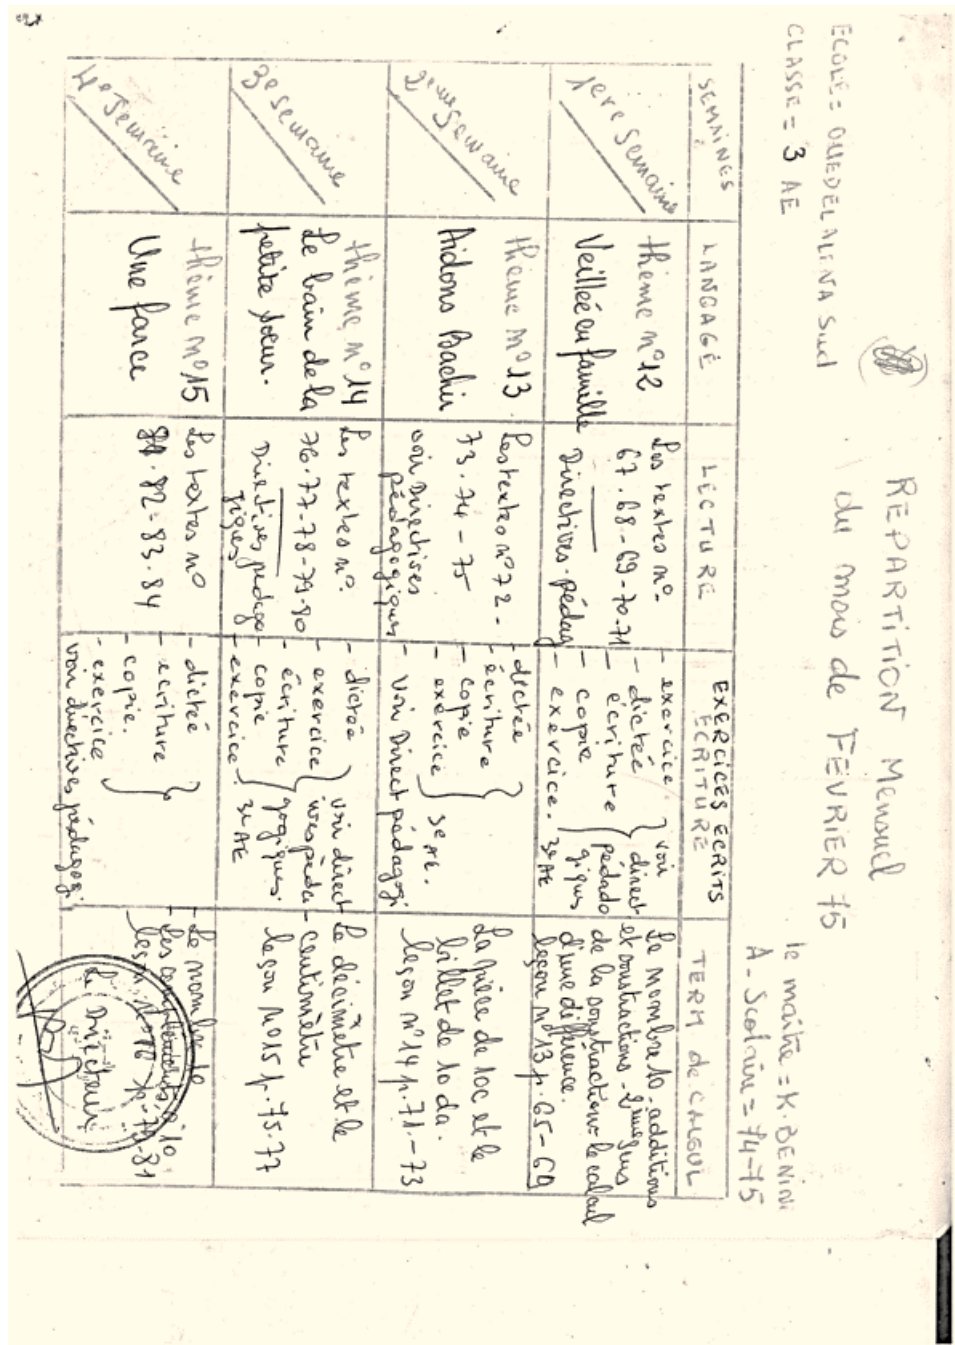 REPARTITION Mensuel
du mois de FEVRIER 75
ECOLE = OUEDELALINA Sud
CLASSE = 3 AE
le maître = K. BENINI
A - Scolaire = 74-75
SEMAINES
LANGAGE
LECTURE
EXERCICES ECRITS
ECRITURE
TERM de CALCUL
1ère Semaine
thème n° 12
Veillée en famille
Les textes n°-
67.68-69-70.71
Directives-pédag
- exercice
- dictée
- écriture
- copie
- exercice.
voir
direct
pédado
giques
3e AE
Le nombre 10 - additions
et soustractions - 2ème sens
de la soustraction - le calcul
d'une différence.
leçon n° 13 p. 65-69
2ème Semaine
thème n° 13
Aidons Bachir
Les textes n° 72-
73.74-75
voir Directives
pédagogiques
- dictée
- écriture
- copie
- exercice
3e AE.
Voir Direct pédagogi
La pièce de 10c et le
billet de 10 da.
leçon n° 14 p. 71-73
3e semaine
thème n° 14
Le bain de la
petite sœur.
Les textes n°.
76.77-78-79-80
Directives pédago
giques
- dictée
- exercice
- écriture
- copie
- exercice
voir direct
gogiques
3e AE
Le décimètre et le
- centimètre
leçon n° 15 p. 75-77
4e Semaine
thème n° 15
Une farce
Les textes n°
81.82-83.84
- dictée
- écriture
- copie.
- exercice
voir directives pédagogi
- Le nombre 10
leçon n° 16 p. 79-81
Le Directeur